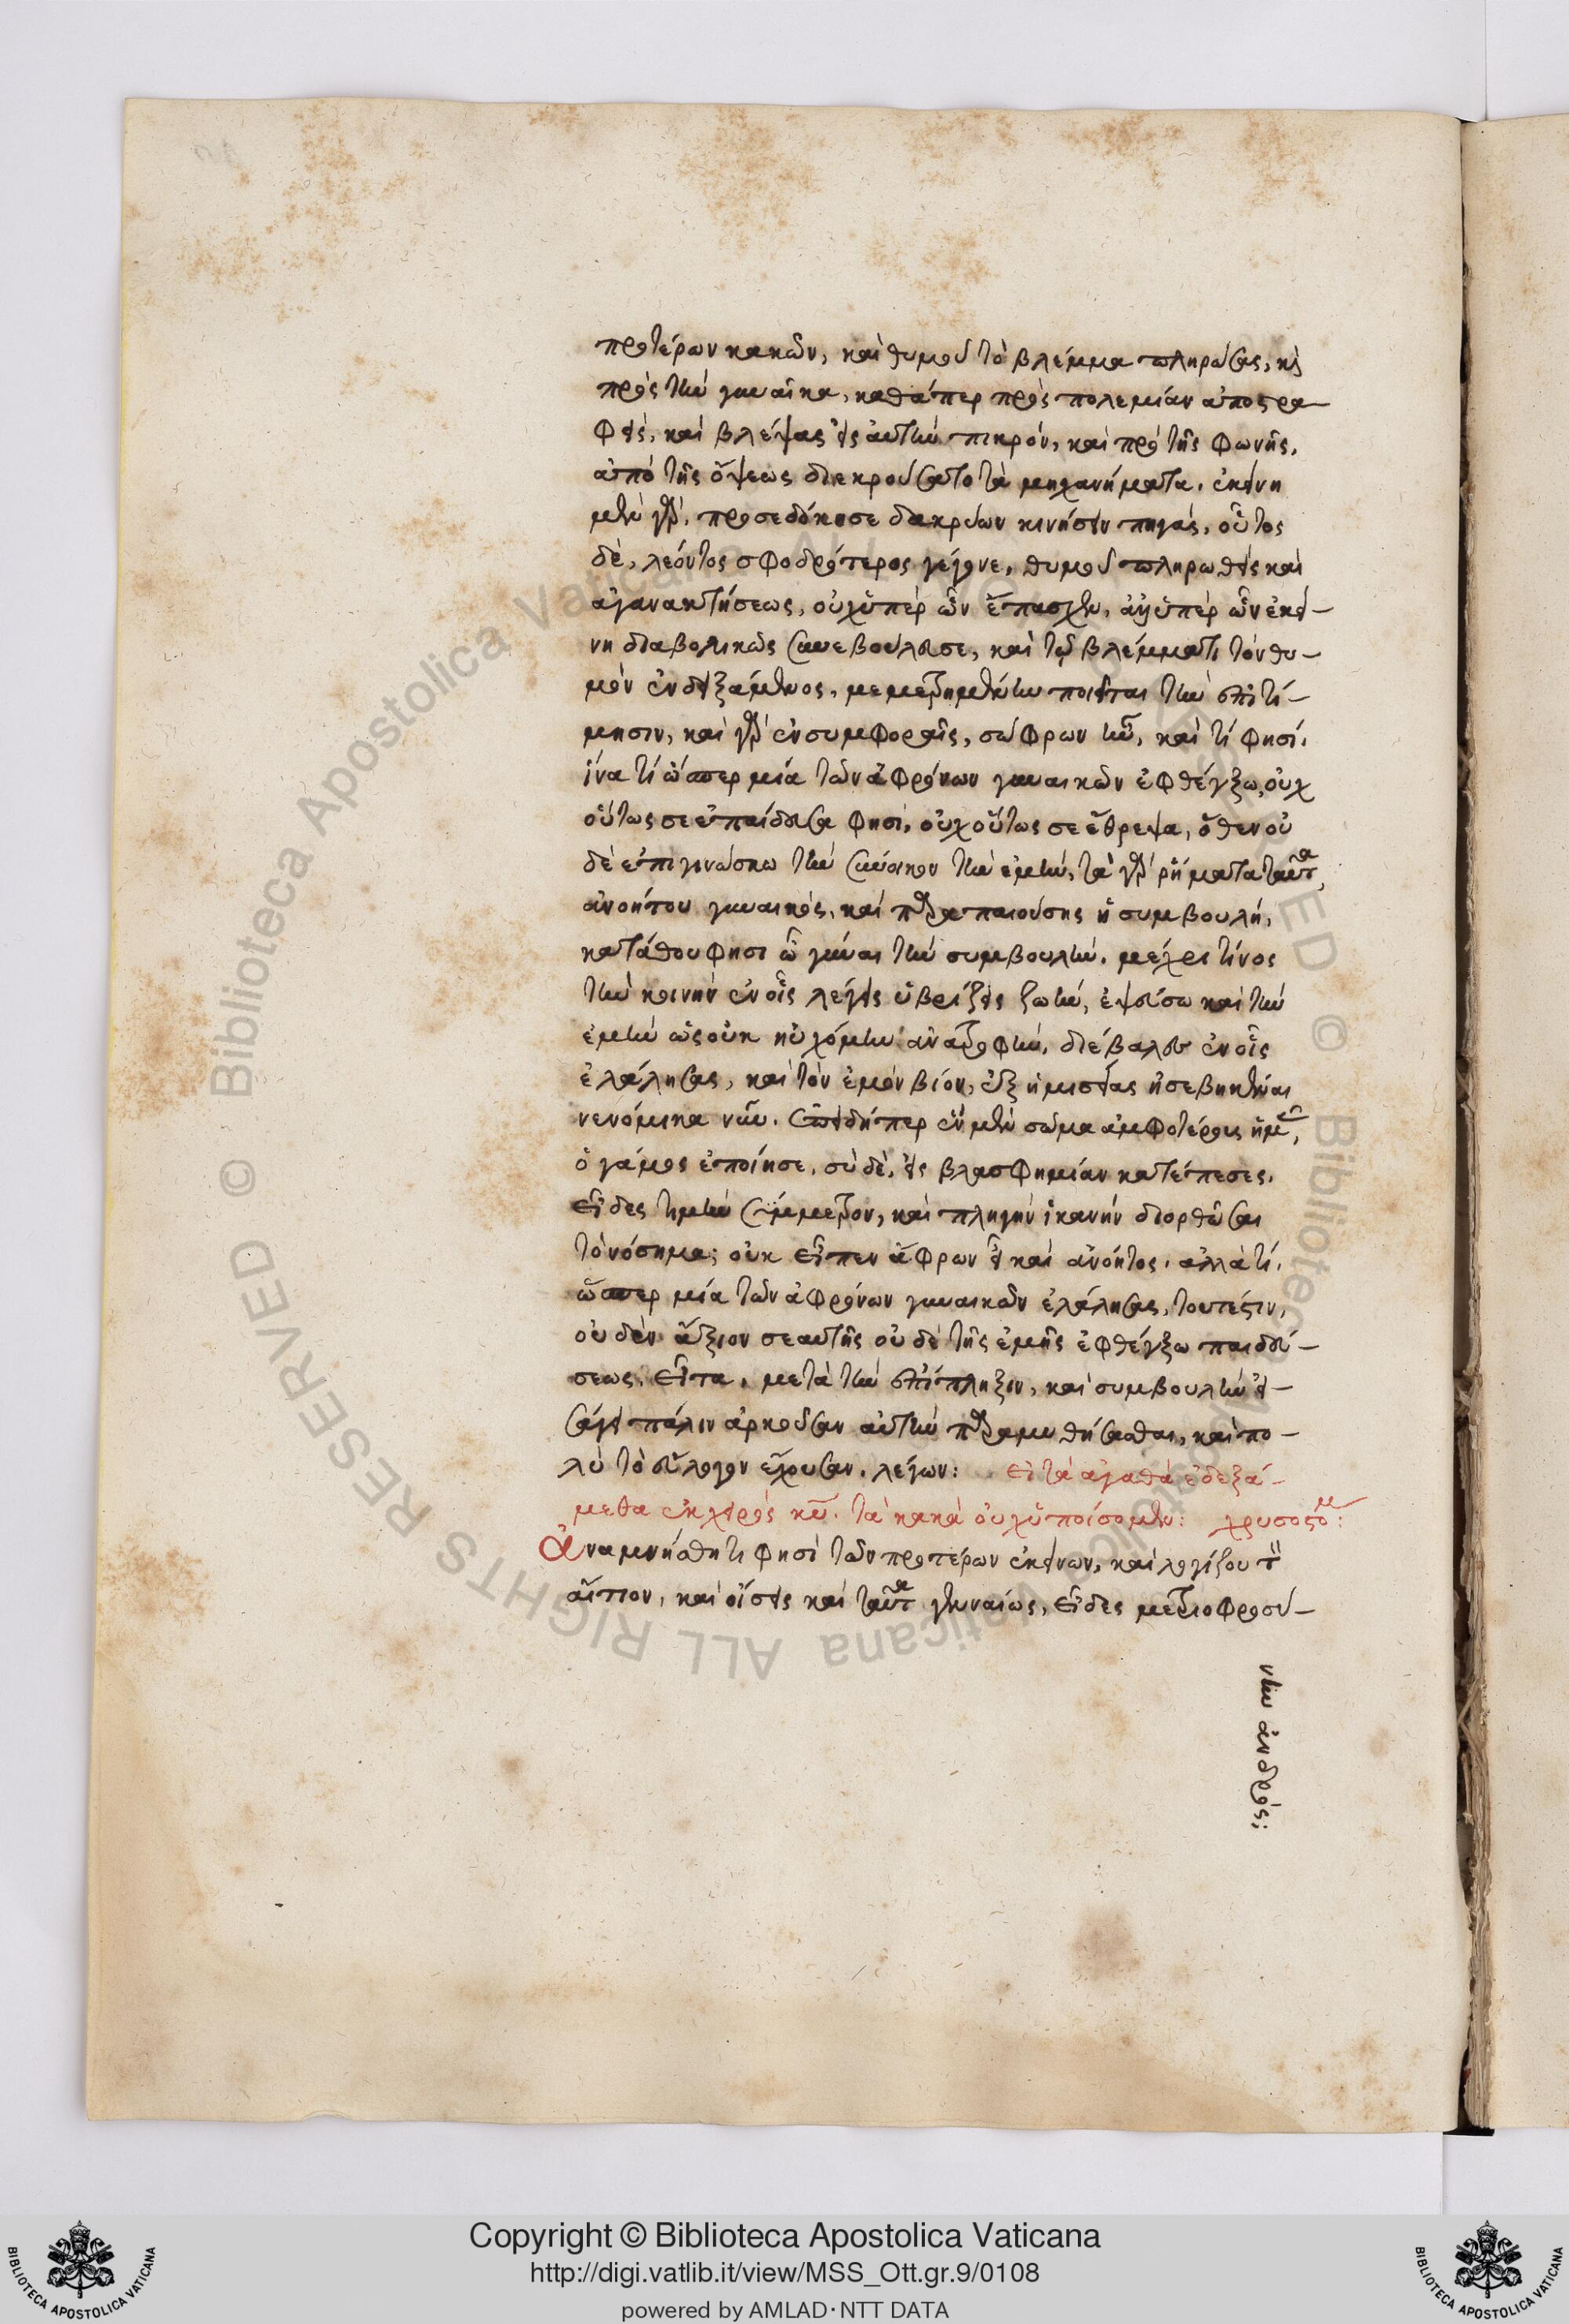 προτέρων κακῶν, καὶ θυμοῦ τὸ βλέμμα πληρώσας, κὶ
πρὸς τὴν γυναῖκα, καθάπερ πρὸς πολεμίαν ἀποστρα
φεὶς, καὶ βλέψας εἰς αὐτὴν πικρόν, καὶ πρὸ τῆς φωνῆς,
ἀπὸ τῆς ὄψεως διεκρούσατο τὰ μηχανήματα. ἐκείνη
μὲν γὰρ, προσεδόκησε δακρύων κινήσειν πηγάς, οὗτος
δὲ, λεόντος σφοδρότερος γέγονε, θυμοῦ πληρωθεὶς καὶ
ἀγανακτήσεως, οὐχ ὑπὲρ ὧν ἔπασχεν, ἀλλ' ὑπὲρ ὧν ἐκεί-
νη διαβολικῶς συνεβούλευσε, καὶ τῷ βλέμματι τὸν θυ-
μὸν ἐνδειξάμενος, μεμετρημένην ποιεῖται τὴν ἐπιτί-
μησιν, καὶ γὰρ ἐν συμφοραῖς, σώφρων ἦν, καὶ τί φησί,
ἵνα τί ὥσπερ μία τῶν ἀφρόνων γυναικῶν ἐφθέγξω, οὐχ
οὕτως σε ἐπαίδευσα φησί, οὐχ οὕτως σε ἔθρεψα, ὅθεν οὐ
δὲ ἐπιγινώσκω τὴν σύνοικον τὴν ἐμὴν, τὰ γὰρ ῥήματα ταῦτα,
ἀνοήτου γυναικός, καὶ παραπαιούσης ἡ συμβουλή,
κατάθου φησι ὦ γύναι τὴν συμβουλὴν, μέχρι τίνος
τὴν κοινὴν ἐν οἷς λέγεις ὑβρίζεις ζωὴν, ἐψεύσω καὶ τὴν
ἐμὴν ὡς οὐκ ηὐχόμην ἀναστροφὴν, διέβαλες ἐν οἷς
ἐλάλησας, καὶ τὸν ἐμὸν βίον, ἐξ ἡμισείας ἠσεβηκέναι
νενόμικα νῦν. ἐπειδήπερ ἓν μὲν σῶμα ἀμφοτέρους ἡμᾶς,
ὁ γάμος ἐποίησε, σὺ δὲ, εἰς βλασφημίαν κατέπεσες,
εἶδες τομὴν σύμμετρον, καὶ πληγὴν ἱκανὴν διορθῶσαι
τὸ νόσημα; οὐκ εἶπεν ἄφρων εἶ καὶ ἀνόητος, ἀλλὰ τί,
ὥσπερ μία τῶν ἀφρόνων γυναικῶν ἐλάλησας, τουτέστιν,
οὐδὲν ἄξιον σεαυτῆς οὐδὲ τῆς ἐμῆς ἐφθέγξω παιδεύ-
σεως. εἶτα, μετὰ τὴν ἐπίπληξιν, καὶ συμβουλὴν εἰ-
σάγει πάλιν ἀρκοῦσαν αὐτὴν παραμυθήσασθαι, καὶ πο-
λὺ τὸ εὔλογον ἔχουσαν. λέγων: εἰ τὰ ἀγαθὰ ἐδεξά-
μεθα ἐκ χειρὸς κυ. τὰ κακὰ οὐχ ὑποίσομεν: χρυσοστομ:
Ἀναμνήσθητι φησὶ τῶν προτέρων ἐκείνων, καὶ λογίζου τ
αἴτιον, καὶ οἴσεις καὶ ταῦτα γενναίως, εἶδες μετριοφροσύ-
νην ἀνδρός;
Copyright © Biblioteca Apostolica Vaticana
http://digi.vatlib.it/view/MSS_Ott.gr.9/0108
powered by AMLAD·NTT DATA